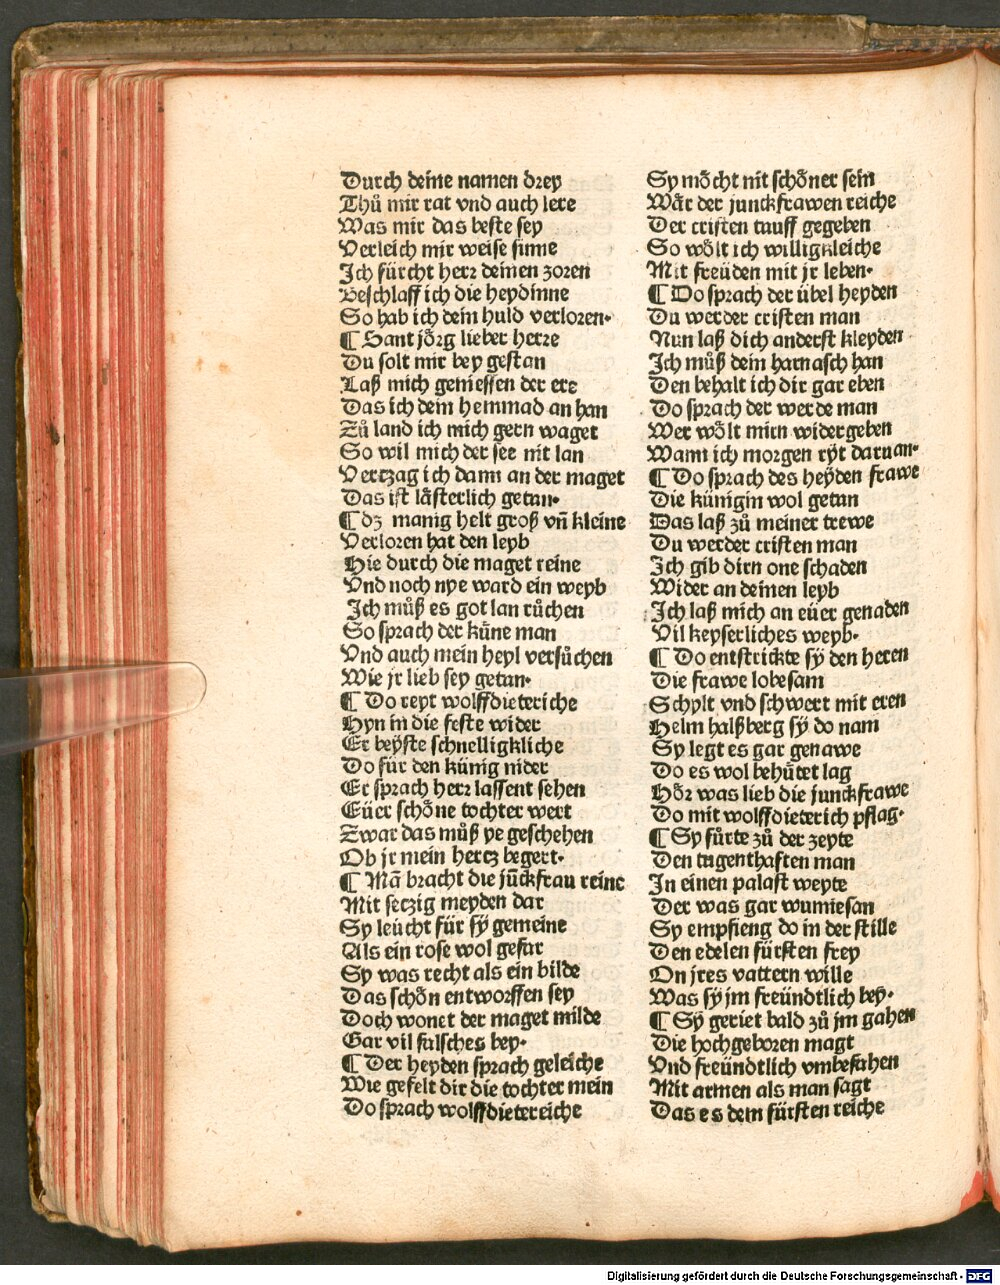 Durch deine namen drey
Thů mir rat vnd auch lere
Was mir das beste sey
Verleich mir weise sinne
Ich fürcht herr deinen zoren
Beschlaff ich die heydinne
So hab ich dein huld verloren.
¶ Sant jörg lieber herre
Du solt mir bey gestan
Laß mich geniessen der ere
Das ich dein hemmad an han
Zů land ich mich gern waget
So wil mich der see nit lan
Vertzag ich dann an der maget
Das ist lästerlich getan.
¶ dz manig helt groß vn̄ kleine
Verloren hat den leyb
Hie durch die maget reine
Vnd noch nye ward ein weyb
Ich můß es got lan růchen
So sprach der küne man
Vnd auch mein heyl versůchen
Wie jr lieb sey getan.
¶ Do reyt wolffdieteriche
Hyn in die feste wider
Er beyste schnelligkliche
Do für den künig nider
Er sprach herr lassent sehen
Eüer schöne tochter wert
Zwar das můß ye geschehen
Ob jr mein hertz begert.
¶ Mā bracht die jūckfrau reine
Mit sectzig meyden dar
Sy leücht für sÿ gemeine
Als ein rose wol gefar
Sy was recht als ein bilde
Das schön entworffen sey
Doch wonet der maget milde
Gar vil falsches bey.
¶ Der heyden sprach geleiche
Wie gefelt dir die tochter mein
Do sprach wolffdietereiche
Sy möcht nit schöner sein
Wär der junckfrawen reiche
Der cristen tauff gegeben
So wölt ich willigkleiche
Mit freüden mit jr leben.
¶ Do sprach der übel heyden
Du werder cristen man
Nun laß dich anderst kleyden
Ich můß dein harnasch han
Den behalt ich dir gar eben
Do sprach der werde man
Wer wölt mirn widergeben
Wann ich morgen ryt daruan.
¶ Do sprach des heÿden frawe
Die künigin wol getan
Das laß zů meiner trewe
Du werder cristen man
Ich gib dirn one schaden
Wider an deinen leyb
Ich laß mich an eüer genaden
Vil keyserliches weyb.
¶ Do entstrickte sÿ den heren
Die frawe lobesam
Schylt vnd schwert mit eren
Helm halßberg sÿ do nam
Sy legt es gar genawe
Do es wol behütet lag
Hör was lieb die junckfrawe
Do mit wolffdieterich pflag.
¶ Sy fůrte zů der zeyte
Den tugenthaften man
In einen palast weyte
Der was gar wunnesan
Sy empfieng do in der stille
Den edelen fürsten frey
On jres vattern wille
Was sÿ jm freündtlich bey.
¶ Sÿ geriet bald zů jm gahen
Die hochgeboren magt
Vnd freündtlich vmbefahen
Mit armen als man sagt
Das es dem fürsten reiche
Digitalisierung gefördert durch die Deutsche Forschungsgemeinschaft - DFG